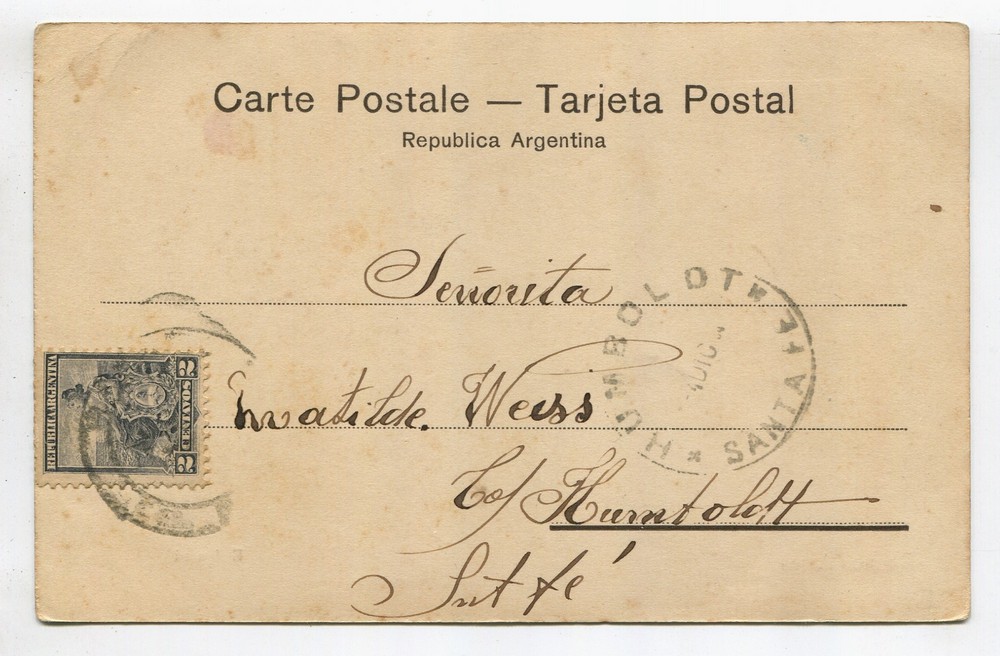 Carte Postale — Tarjeta Postal
Republica Argentina
Señorita
Matilde. Weiss
Humboldt
Snt fé
HUMBOLDT * SANTA FE *
DIC
REPUBLICA ARGENTINA
2 CENTAVOS 2